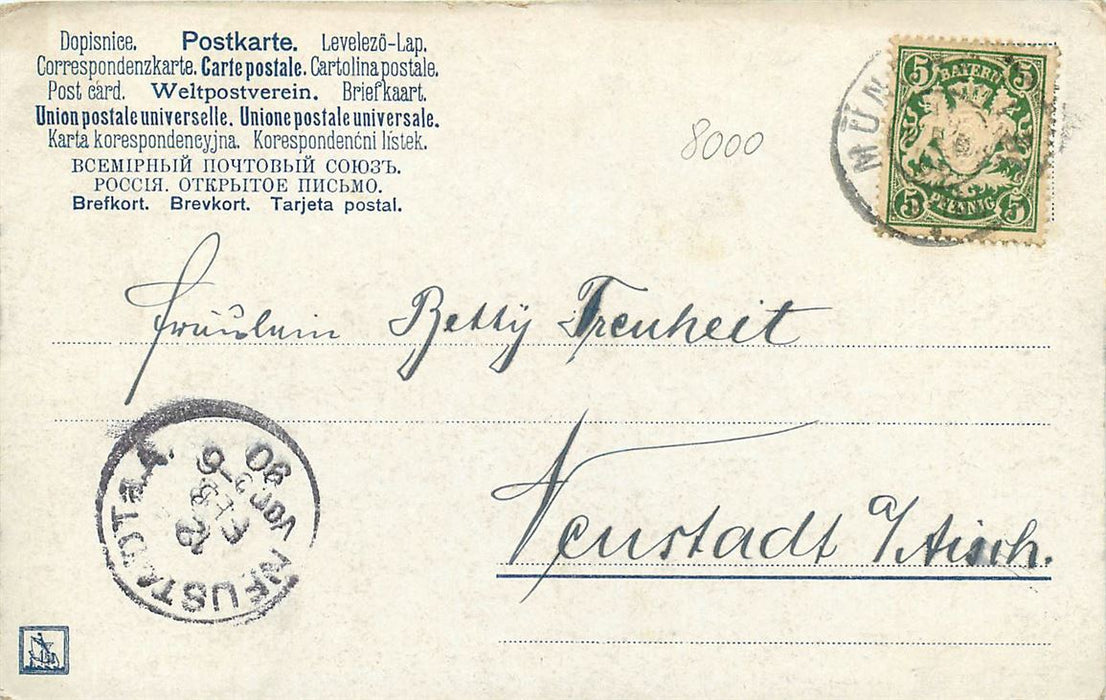 Dopisnice. Postkarte. Levelező-Lap.
Correspondenzkarte. Carte postale. Cartolina postale.
Post card. Weltpostverein. Briefkaart.
Union postale universelle. Unione postale universale.
Karta korespondencyjna. Korespondenční lístek.
ВСЕМІРНЫЙ ПОЧТОВЫЙ СОЮЗЪ.
РОССІЯ. ОТКРЫТОЕ ПИСЬМО.
Brefkort. Brevkort. Tarjeta postal.
8000
5 BAYERN 5
5 PFENNIG 5
MÜN
Fräulein Betty Treuheit
Neustadt a/Aisch.
NEUSTADT a. A.
06
Vor